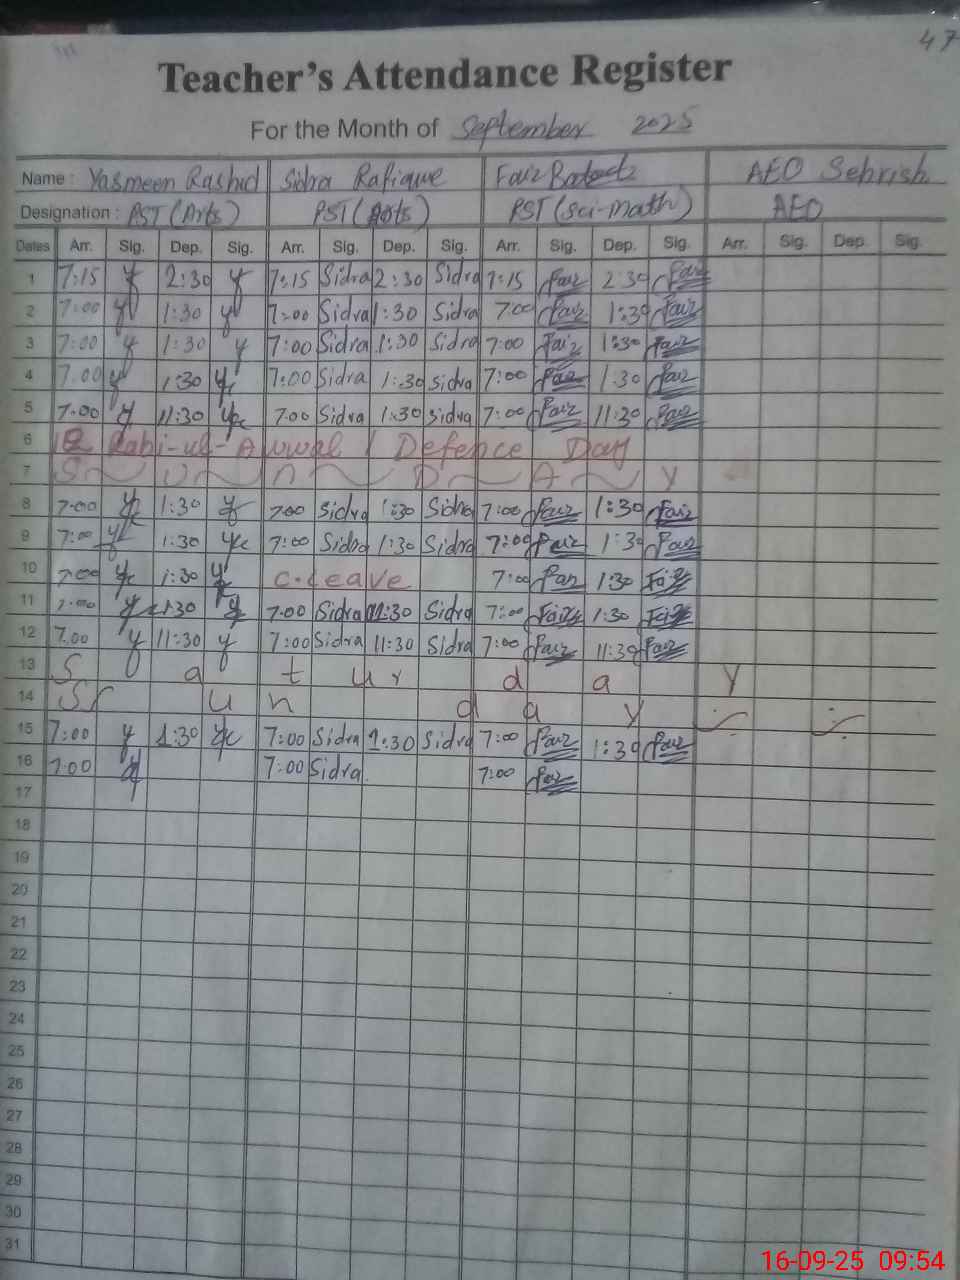 47
Teacher's Attendance Register
For the Month of September 2025
Name : Yasmeen Rashid Sidra Rafique Faiz AEO Sehrish
Designation : PST (Arts) PST (Arts) PST (Sci-math) AEO
Dates Arr. Sig. Dep. Sig. Arr. Sig. Dep. Sig. Arr. Sig. Dep. Sig. Arr. Sig. Dep. Sig.
1 7:15 y 2:30 y 7:15 Sidra 2:30 Sidra 7:15 Faiz 2:30 Faiz
2 7:00 y 1:30 y 7:00 Sidra 1:30 Sidra 7:00 Faiz 1:30 Faiz
3 7:00 y 1:30 y 7:00 Sidra 1:30 Sidra 7:00 Faiz 1:30 Faiz
4 7:00 y 1:30 y 7:00 Sidra 1:30 Sidra 7:00 Faiz 1:30 Faiz
5 7:00 y 11:30 y 7:00 Sidra 1:30 Sidra 7:00 Faiz 11:30 Faiz
6 12 Rabi-ul-Awwal / Defence Day
7 S U N D A Y
8 7:00 y 1:30 y 7:00 Sidra 1:30 Sidra 7:00 Faiz 1:30 Faiz
9 7:00 y 1:30 y 7:00 Sidra 1:30 Sidra 7:00 Faiz 1:30 Faiz
10 7:00 y 1:30 y C.Leave 7:00 Faiz 1:30 Faiz
11 7:00 y 1:30 y 7:00 Sidra 1:30 Sidra 7:00 Faiz 1:30 Faiz
12 7:00 y 11:30 y 7:00 Sidra 11:30 Sidra 7:00 Faiz 11:30 Faiz
13 S a t u r d a y
14 S u n d a y
15 7:00 y 1:30 y 7:00 Sidra 1:30 Sidra 7:00 Faiz 1:30 Faiz
16 7:00 y 7:00 Sidra 7:00 Faiz
17
18
19
20
21
22
23
24
25
26
27
28
29
30
31
16-09-25 09:54